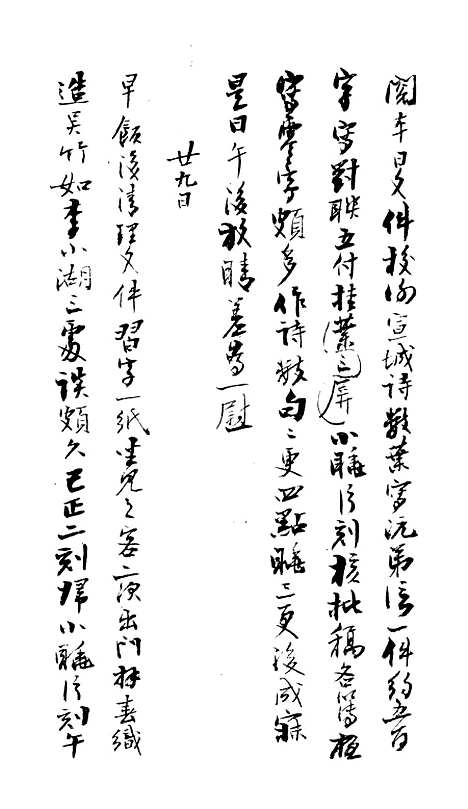 閱本日文件校閱宣城詩數葉寫沅弟信一件約五百
字寫對聯五付挂叢三屏小睡片刻核批稿各簿
寫零字頗多作詩數句二更四點睡三更後成寐
是日午後放晴差為一慰
廿九日
早飯後清理文件習字一紙坐見之客二次出門拜春織
造吳竹如李小湖三處談頗久巳正二刻歸小睡片刻午